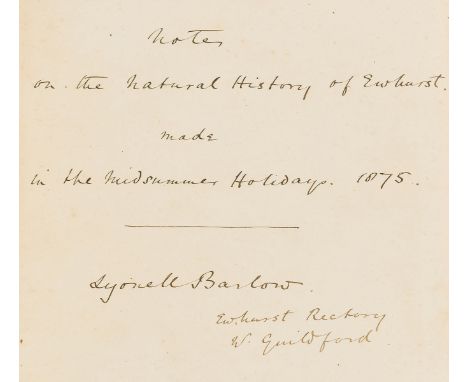 Notes
on the Natural History of Ewhurst.
made
in the Midsummer Holidays. 1875.
Lyonell Barlow.
Ewhurst Rectory
W. Guildford